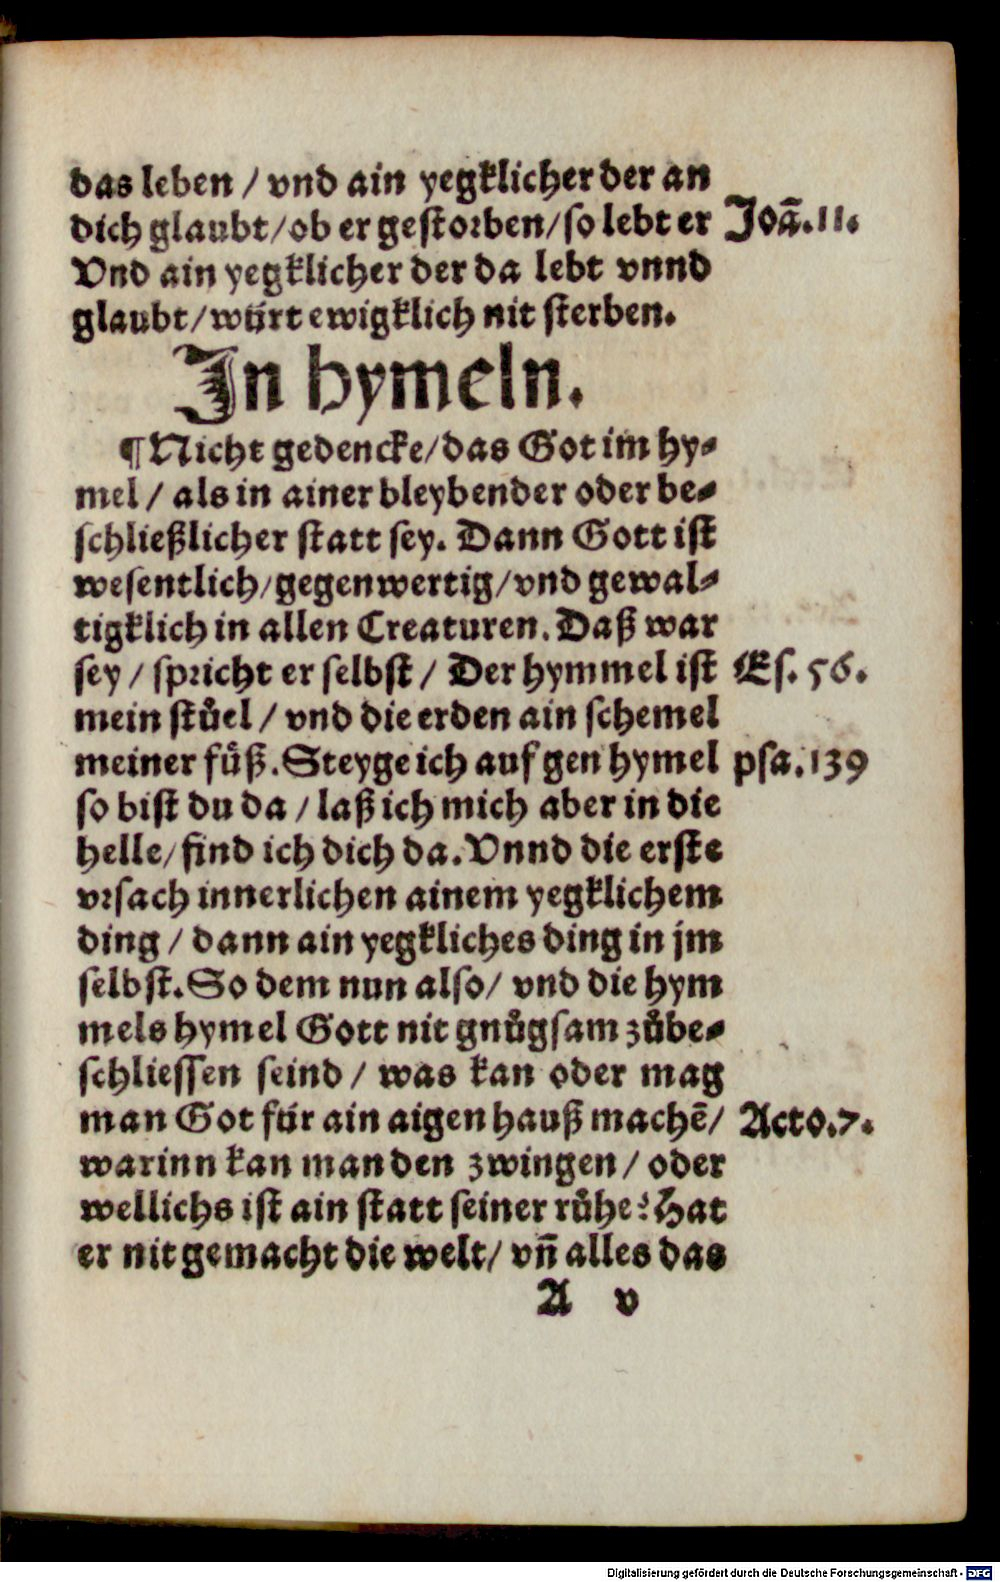 das leben / vnd ain yegklicher der an
dich glaubt / ob er gestorben / so lebt er Joā. 11.
Vnd ain yegklicher der da lebt vnnd
glaubt / würt ewigklich nit sterben.
In hymeln.
¶ Nicht gedencke / das Got im hy⸗
mel / als in ainer bleybender oder be⸗
schließlicher statt sey. Dann Gott ist
wesentlich / gegenwertig / vnd gewal⸗
tigklich in allen Creaturen. Daß war
sey / spricht er selbst / Der hymmel ist Es. 56.
mein stůel / vnd die erden ain schemel
meiner fůß. Steyge ich auf gen hymel psa. 139
so bist du da / laß ich mich aber in die
helle / find ich dich da. Vnnd die erste
vrsach innerlichen ainem yegklichem
ding / dann ain yegkliches ding in jm
selbst. So dem nun also / vnd die hym
mels hymel Gott nit gnůgsam zůbe⸗
schliessen seind / was kan oder mag
man Got für ain aigen hauß machē / Acto. 7.
warinn kan man den zwingen / oder
wellichs ist ain statt seiner růhe? Hat
er nit gemacht die welt / vñ alles das
A v
Digitalisierung gefördert durch die Deutsche Forschungsgemeinschaft - DFG